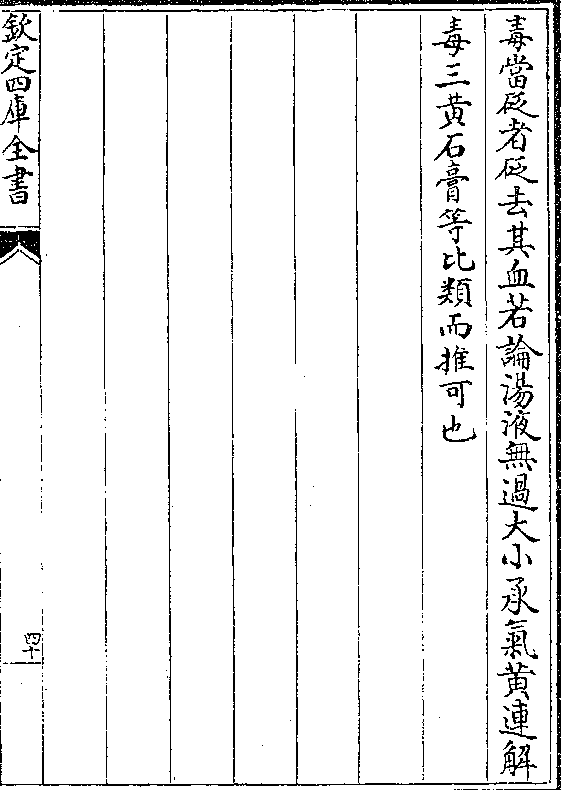 毒當砭者砭去其血若論湯液無過大小承氣黄連解
毒三黄石膏等比類而推可也
欽定四庫全書
四十